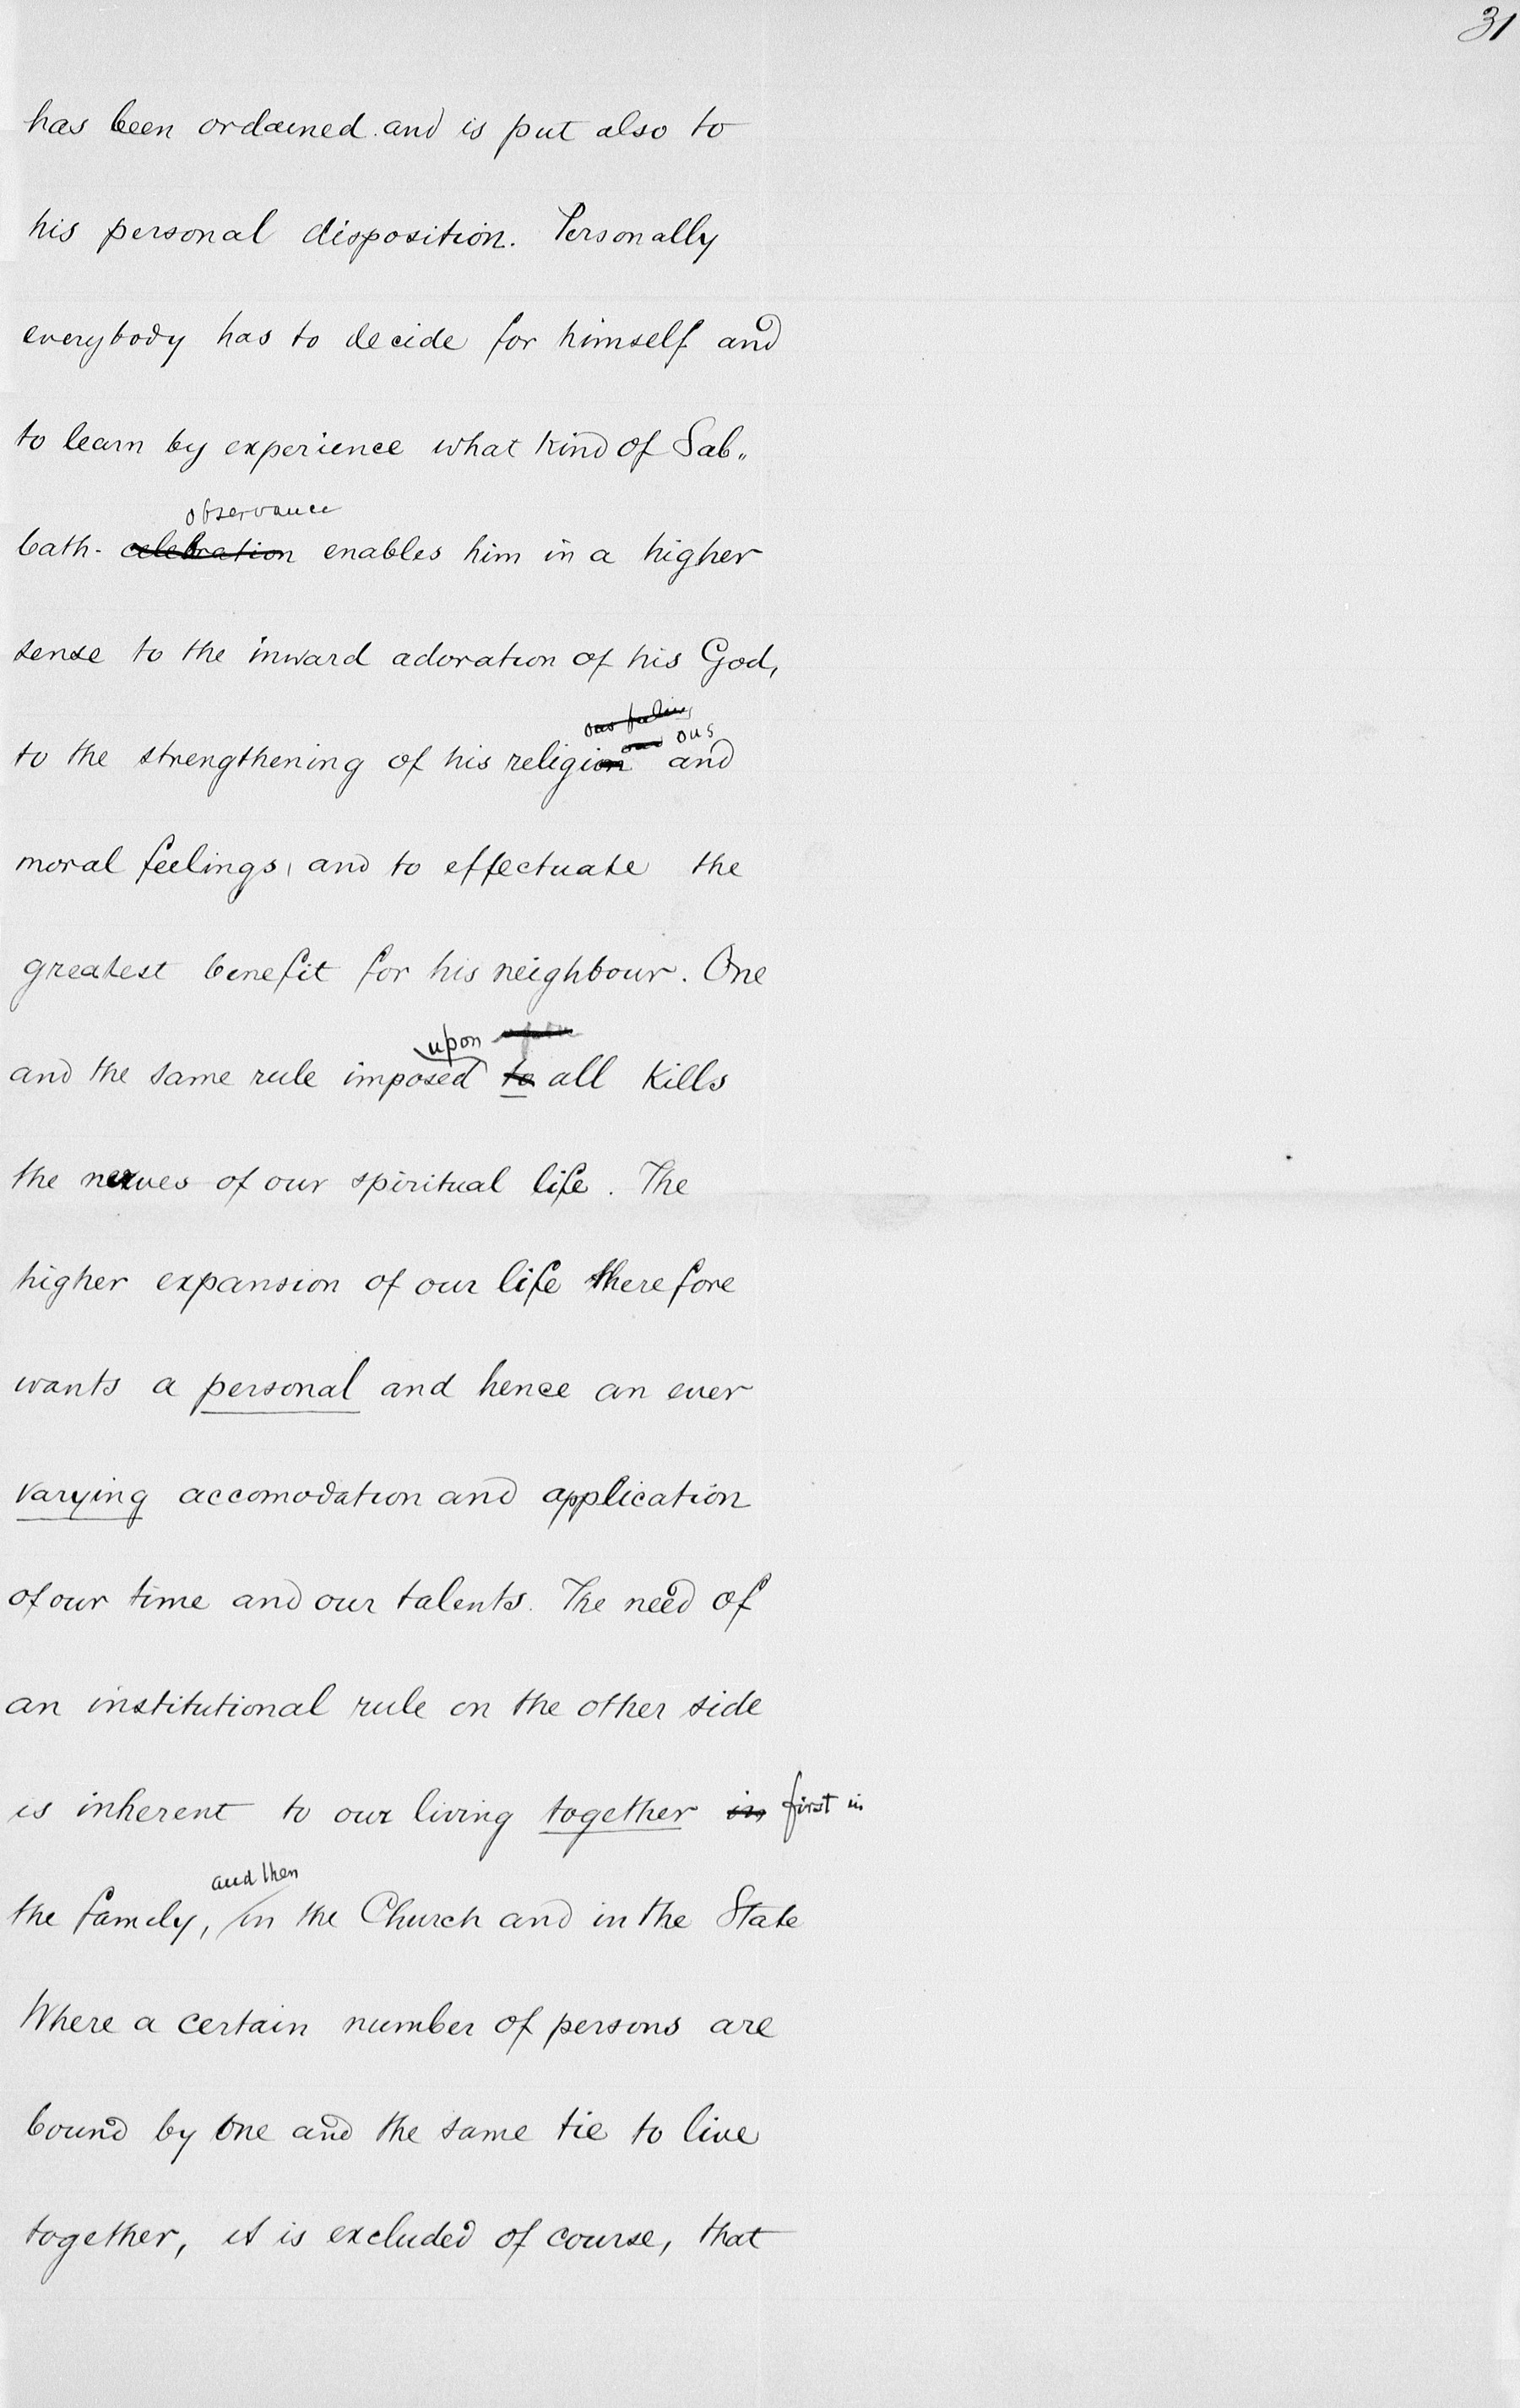 31
has been ordained and is put also to
his personal disposition. Personally
everybody has to decide for himself and
to learn by experience what kind of Sab„
observance
bath- celebration enables him in a higher
sense to the inward adoration of his God,
ous feeling
ous
to the strengthening of his religion and
moral feelings, and to effectuate the
greatest benefit for his neighbour. One
upon
and the same rule imposed to all kills
the nerves of our spiritual life. The
higher expansion of our life therefore
wants a personal and hence an ever
varying accomodation and application
of our time and our talents. The need of
an institutional rule on the other side
is inherent to our living together in first in
and then
the family, in the Church and in the State
Where a certain number of persons are
bound by one and the same tie to live
together, it is excluded of course, that